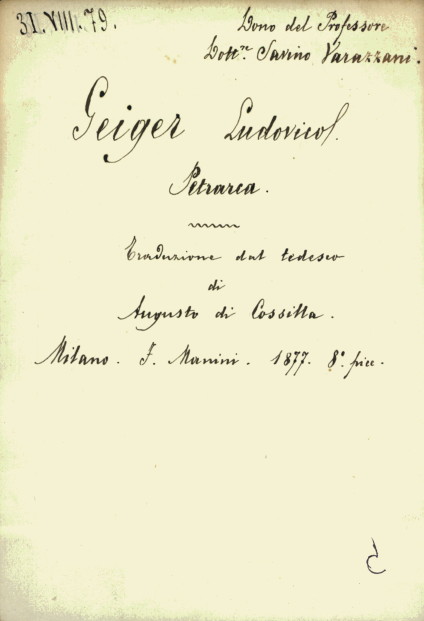 31.VIII.79.
Dono del Professore
Dott.re Savino Varazzani.
Geiger Ludovico.
Petrarca.
Traduzione dal tedesco
di
Augusto di Cossilla.
Milano. F. Manini. 1877. 8.° picc.